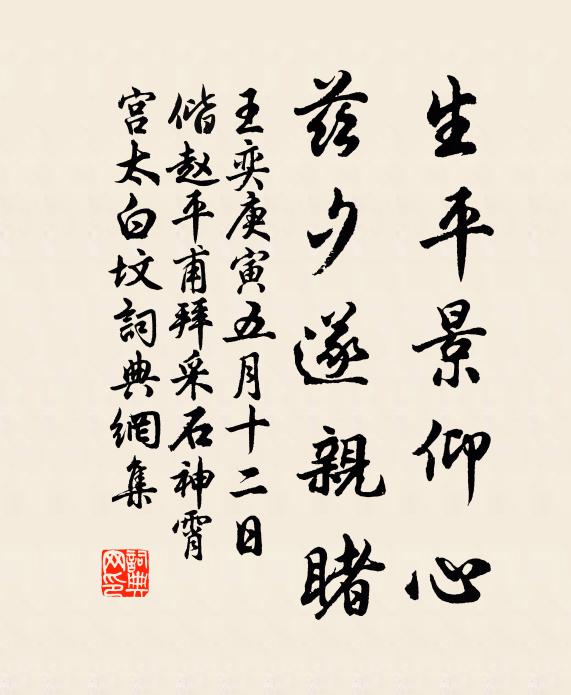 生平景仰心
茲夕遂親睹
王奕庚寅五月十二日
偕赵平甫拜采石神霄
宫太白坟詞典網集
詞典
网印